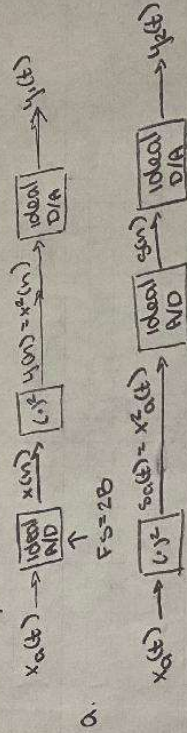 a.
xa(t) → ideal A/D → x(n) → (·)² → y(n) = x²(n) → ideal D/A → y1(t)
↑
FS=2B
xa(t) → (·)² → sa(t) = x²a(t) → ideal A/D → s(n) → ideal D/A → y2(t)